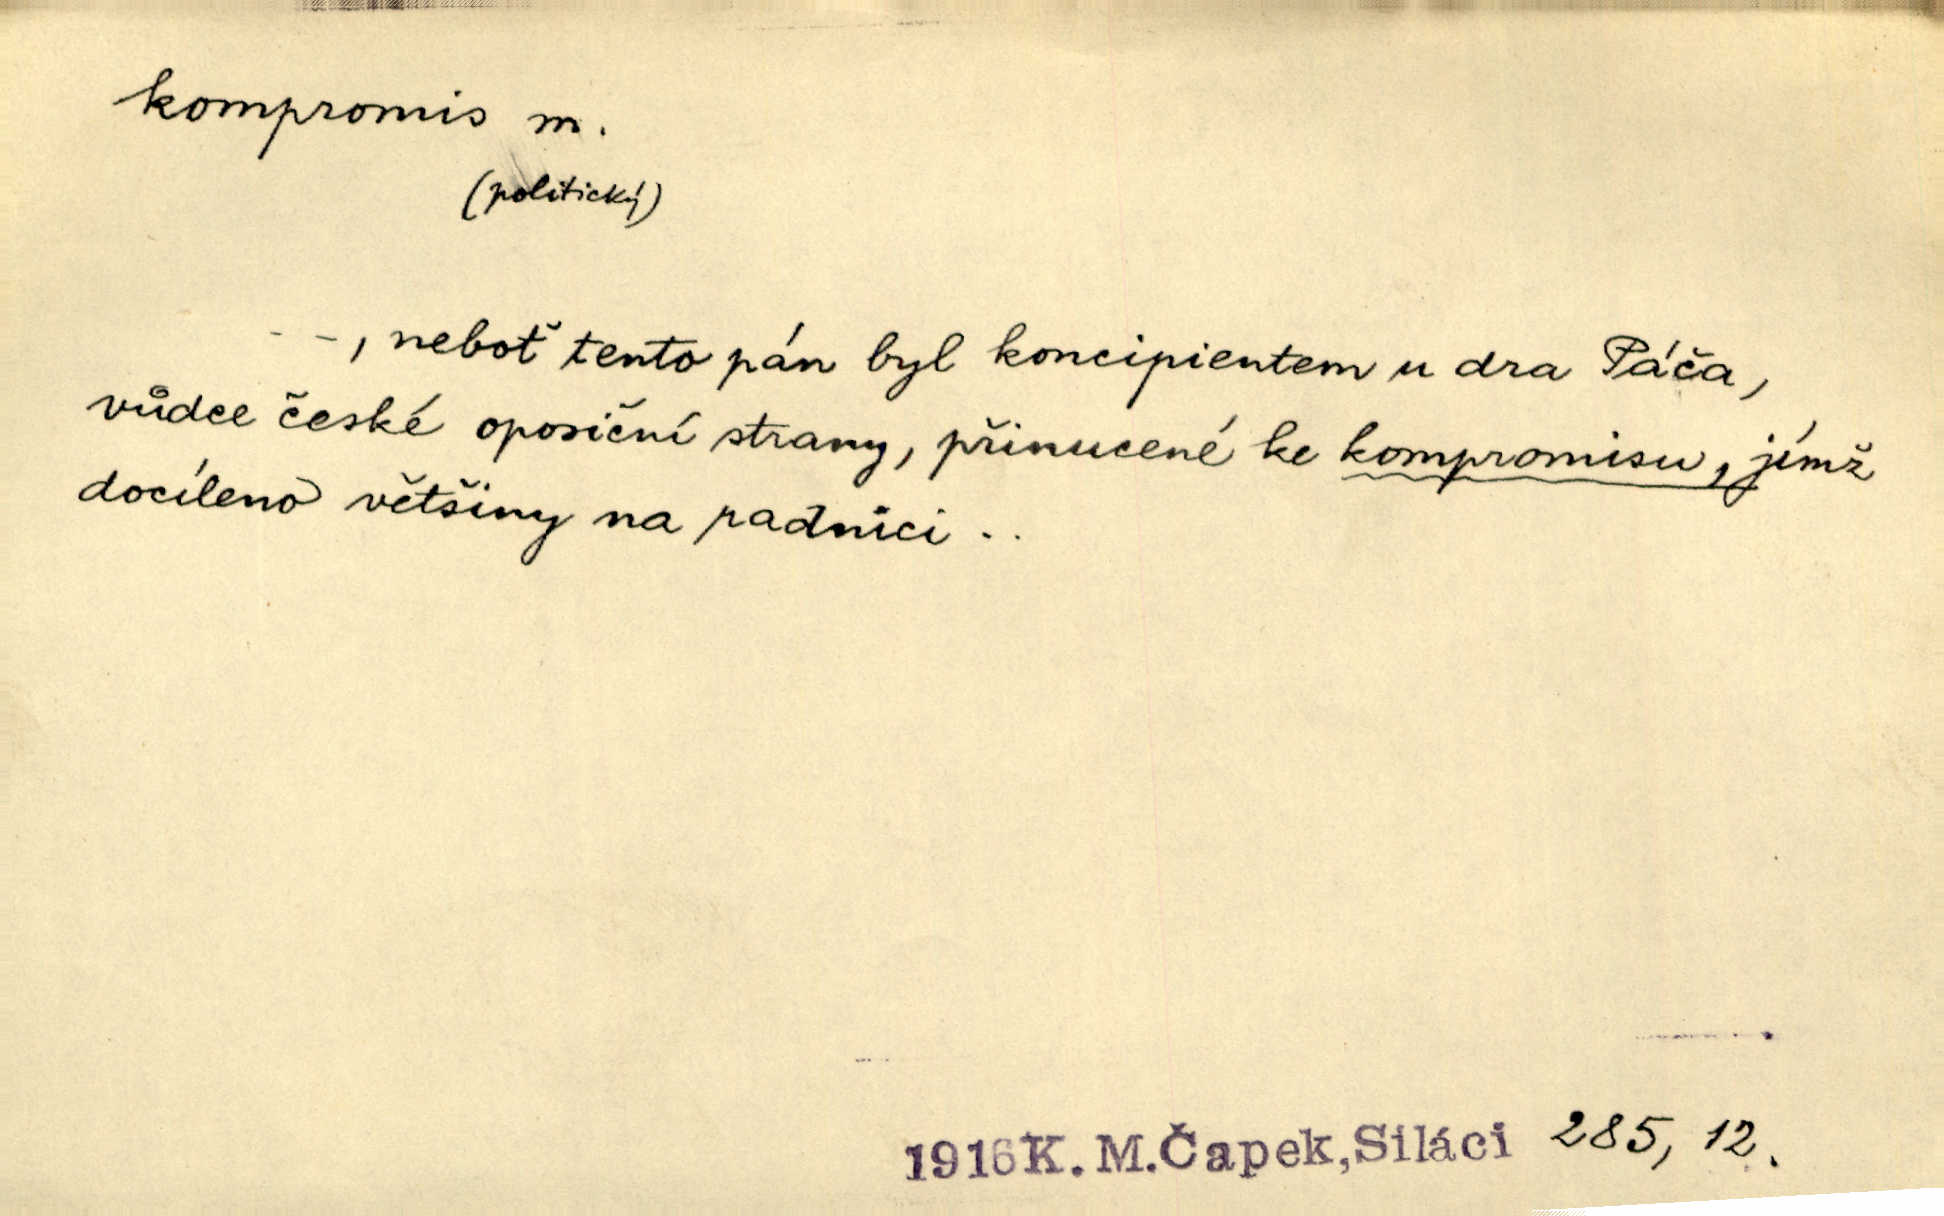 kompromis m.
(politický)
- -, neboť tento pán byl koncipientem u dra Páča,
vůdce české oposiční strany, přinucené ke kompromisu, jímž
docíleno většiny na radnici ..
1916 K. M. Čapek, Siláci 285, 12.